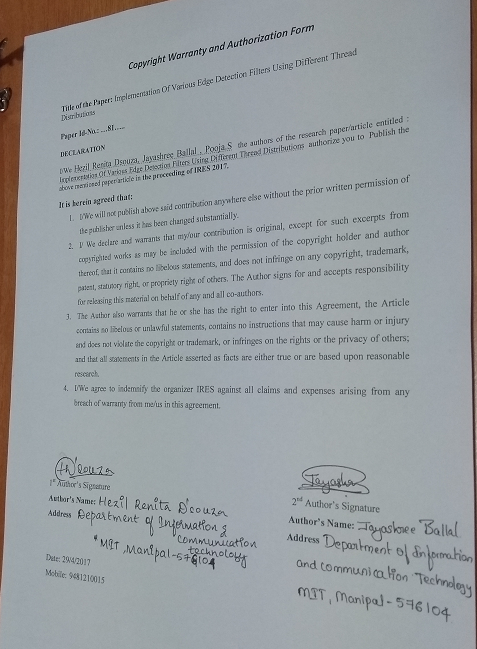 Copyright Warranty and Authorization Form
Title of the Paper: Implementation Of Various Edge Detection Filters Using Different Thread
Distributions
Paper Id-No.: ....81.....
DECLARATION
I/We Hezil Renita Dsouza, Jayashree Ballal , Pooja.S the authors of the research paper/article entitled :
Implementation Of Various Edge Detection Filters Using Different Thread Distributions authorize you to Publish the
above mentioned paper/article in the proceeding of IRES 2017.
It is herein agreed that:
1. I/We will not publish above said contribution anywhere else without the prior written permission of
the publisher unless it has been changed substantially.
2. I/ We declare and warrants that my/our contribution is original, except for such excerpts from
copyrighted works as may be included with the permission of the copyright holder and author
thereof, that it contains no libelous statements, and does not infringe on any copyright, trademark,
patent, statutory right, or propriety right of others. The Author signs for and accepts responsibility
for releasing this material on behalf of any and all co-authors.
3. The Author also warrants that he or she has the right to enter into this Agreement, the Article
contains no libelous or unlawful statements, contains no instructions that may cause harm or injury
and does not violate the copyright or trademark, or infringes on the rights or the privacy of others;
and that all statements in the Article asserted as facts are either true or are based upon reasonable
research.
4. I/We agree to indemnify the organizer IRES against all claims and expenses arising from any
breach of warranty from me/us in this agreement.
1st Author's Signature
Author's Name: Hezil Renita D'couza
Address Department of Information &
Communication
technology
MIT, Manipal-576104
Date: 29/4/2017
Mobile: 9481210015
Jayashree
2nd Author's Signature
Author's Name: Jayashree Ballal
Address Department of Information
and communication Technology
MIT, Manipal - 576104